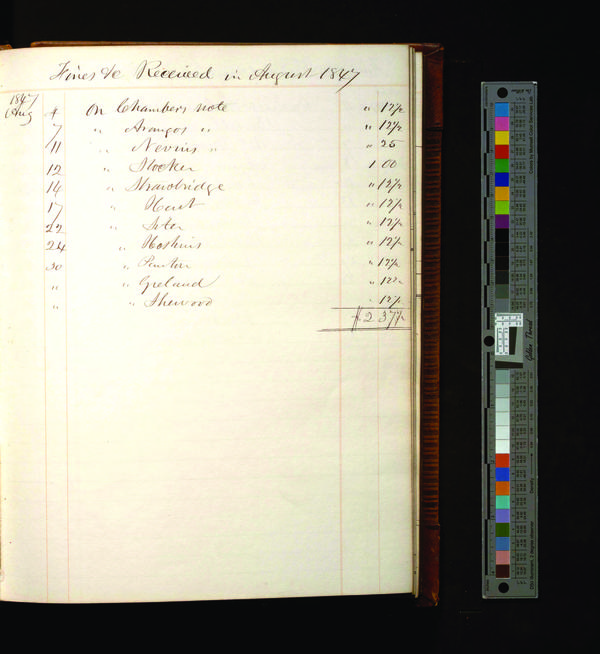 Fines &c Received in August 1847
1847
Aug 4 On Chambers note " 12½
7 " Arangos " " 12½
11 " Nevins " " 25
12 " Stocker 1 00
14 " Strawbridge " 12½
17 " Hart " 12½
22 " " 12½
24 " Hoskins " 12½
30 " " 12½
" " Greland " 12½
" " Sherwood " 12½
$2 37½
Golden Thread